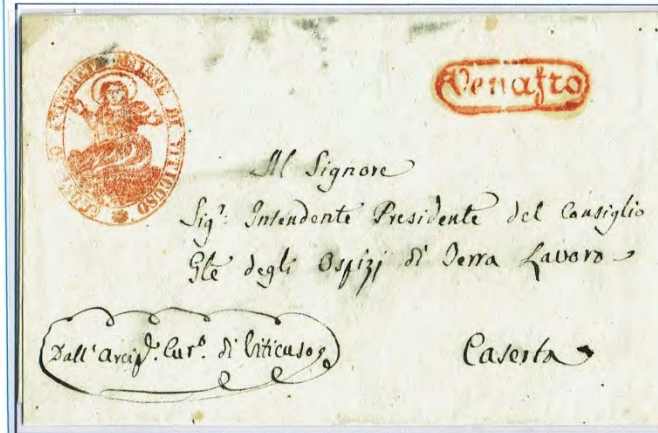 DI VITICUSO
Venafro
Al Signore
Sigr: Intendente Presidente del Consiglio
Gle degli Ospizj di Terra Lavoro
Dall' Arcip. Curo. di Viticuso
Caserta